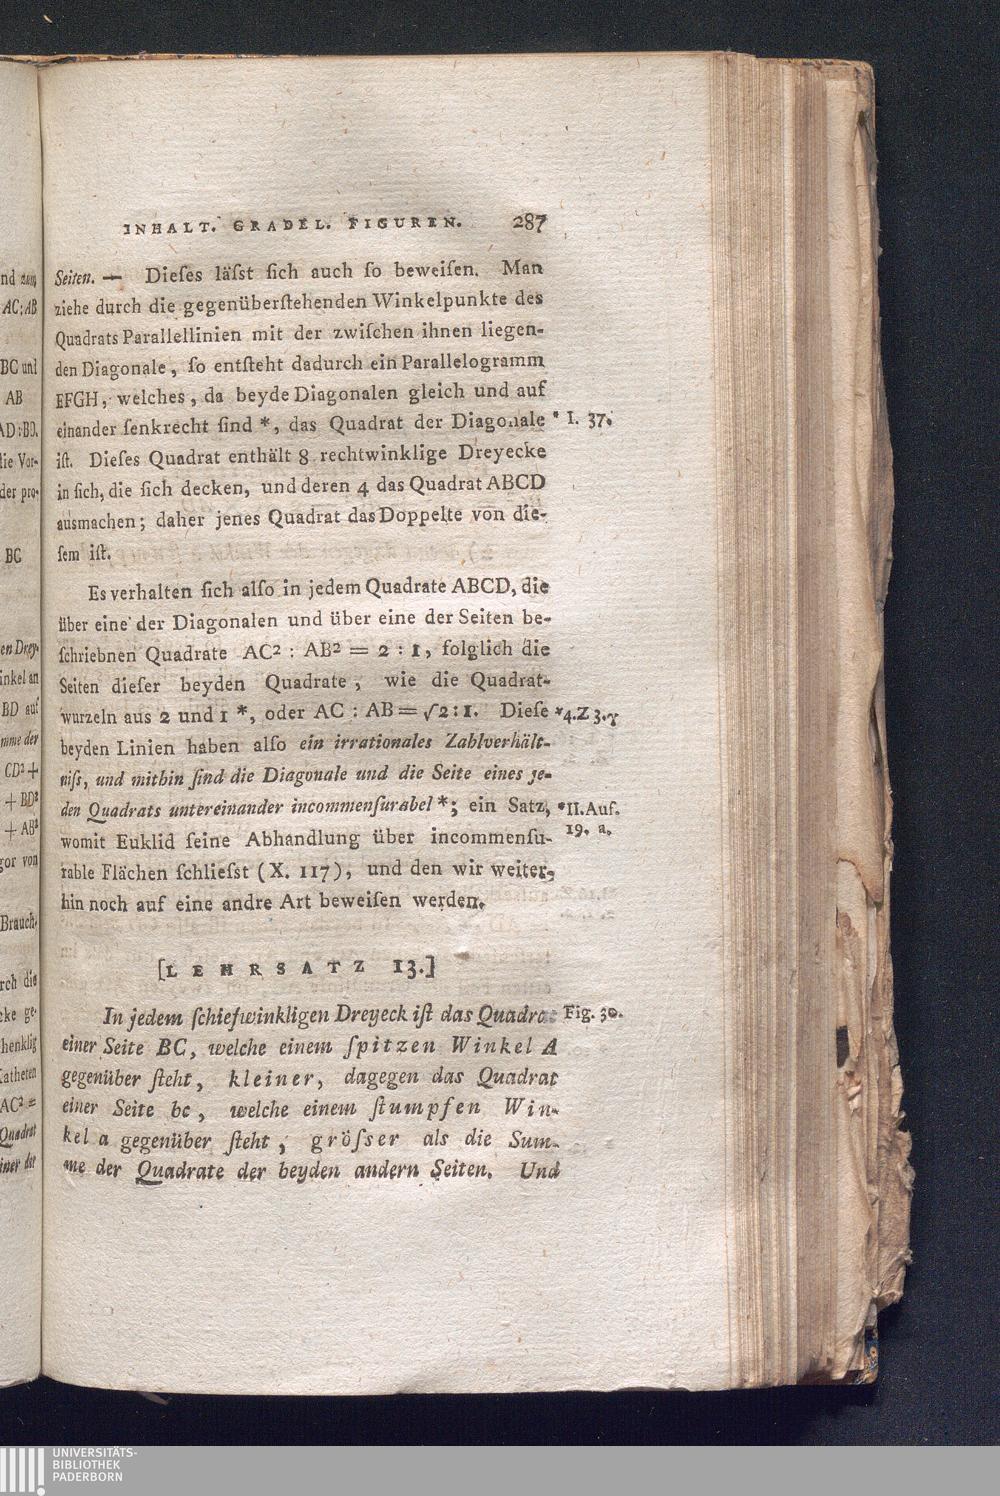 INHALT. GRADEL. FIGUREN. 287
Seiten. — Dieſes läſst ſich auch ſo beweiſen. Man
ziehe durch die gegenüberſtehenden Winkelpunkte des
Quadrats Parallellinien mit der zwiſchen ihnen liegen-
den Diagonale, ſo entſteht dadurch ein Parallelogramm
EFGH, welches, da beyde Diagonalen gleich und auf
einander ſenkrecht ſind *, das Quadrat der Diagonale * I. 37.
iſt. Dieſes Quadrat enthält 8 rechtwinklige Dreyecke
in ſich, die ſich decken, und deren 4 das Quadrat ABCD
ausmachen; daher jenes Quadrat das Doppelte von die-
ſem iſt.
Es verhalten ſich alſo in jedem Quadrate ABCD, die
über eine der Diagonalen und über eine der Seiten be-
ſchriebnen Quadrate AC² : AB² = 2 : 1, folglich die
Seiten dieſer beyden Quadrate, wie die Quadrat-
wurzeln aus 2 und 1 *, oder AC : AB = √2 : 1. Dieſe *4.Z 3.γ
beyden Linien haben alſo ein irrationales Zahlverhält-
niſs, und mithin ſind die Diagonale und die Seite eines je-
den Quadrats untereinander incommenſurabel *; ein Satz, *II.Auf.
19. a.
womit Euklid ſeine Abhandlung über incommenſu-
rable Flächen ſchlieſst (X. 117), und den wir weiter-
hin noch auf eine andre Art beweiſen werden.
[LEHRSATZ 13.]
In jedem ſchiefwinkligen Dreyeck iſt das Quadrat Fig. 30.
einer Seite BC, welche einem ſpitzen Winkel A
gegenüber ſteht, kleiner, dagegen das Quadrat
einer Seite bc, welche einem ſtumpfen Win-
kel a gegenüber ſteht, gröſser als die Sum-
me der Quadrate der beyden andern Seiten. Und
nd zum
AC:AB
BC und
AB
AD:BD.
die Vor-
der pro-
BC
en Drey-
inkel an
BD auf
mme der
CD²+
+BD²
+AB²
gor von
Brauch-
rch die
cke ge-
henklig
Catheten
AC²=
Quadrat
einer der
UNIVERSITÄTS-
BIBLIOTHEK
PADERBORN